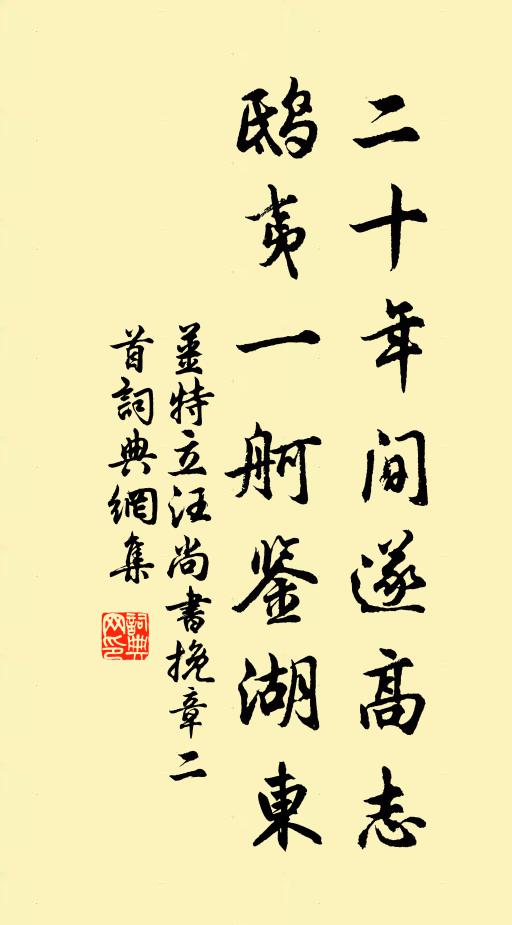 二十年间遂高志
鸱夷一舸鉴湖東
姜特立汪尚書挽章二
首詞典網集
詞典网印